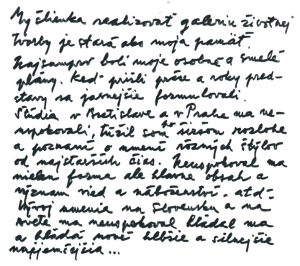 Myšlienka realizovať galeriu životnej
tvorby je stará ako moja pamäť.
Najsamprv boli moje osobné a smelé
plány. Keď prišli práce a roky pred-
stavy sa jasnejšie formulovali.
Štúdia v Bratislave a v Prahe ma ne-
uspokovali, túžil som po širšom rozhlade
a poznaní o umení rôznych štýlov
od najstarších čias. Neuspokoval ma
nielen forma ale hlavne obsah a
význam vied a náboženství. atď.
Vývoj umenia na Slovensku a na
svete ma neuspokoval hľadal ma
a hľadá nové hlbšie a silnejšie
najjasnejšia...